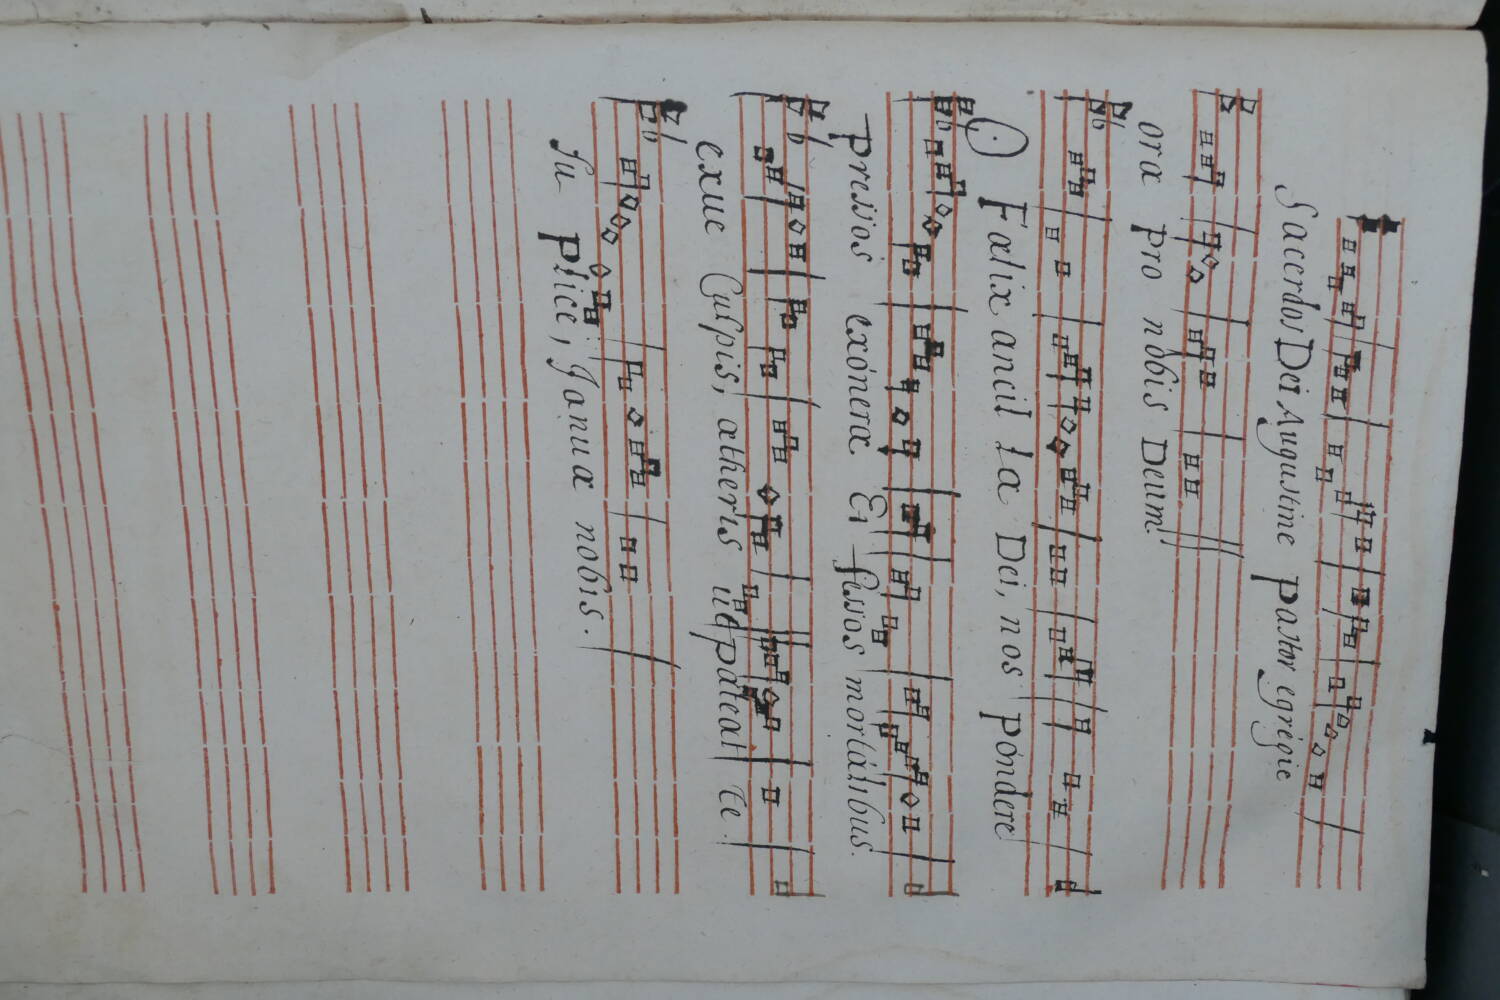 Sacerdos Dei Augustine pastor egrégie
ora pro nobis Deum.
O Fœlix ancilla Dei, nos póndere
pressos exónera Et fessos mortálibus.
exue Culpis, ætheris ut páteat te
su plice, Janua nobis.